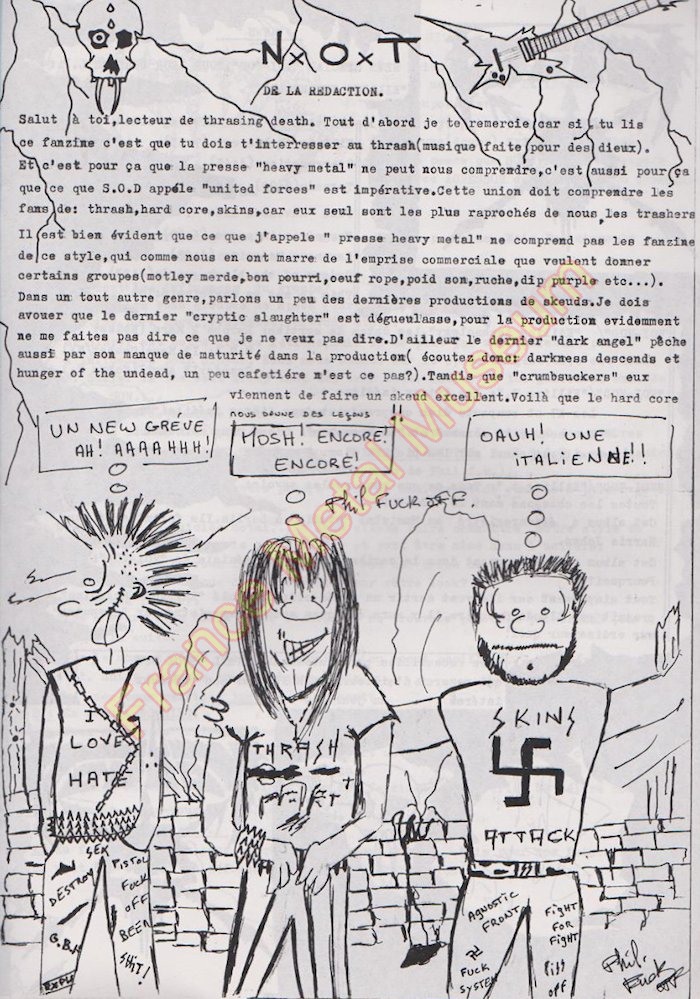 N×O×T
DE LA REDACTION.
Salut à toi,lecteur de thrasing death. Tout d'abord je te remercie car si tu lis
ce fanzine c'est que tu dois t'interresser au thrash(musique faite pour des dieux).
Et c'est pour ça que la presse "heavy metal" ne peut nous comprendre,c'est aussi pour ça
que ce que S.O.D appéle "united forces" est impérative.Cette union doit comprendre les
fans de: thrash,hard core,skins,car eux seul sont les plus raprochés de nous,les trashers
Il est bien évident que ce que j'appele " presse heavy metal" ne comprend pas les fanzine
de ce style,qui comme nous en ont marre de l'emprise commerciale que veulent donner
certains groupes(motley merde,bon pourri,oeuf rope,poid son,ruche,dip purple etc...).
Dans un tout autre genre,parlons un peu des dernières productions de skeuds.Je dois
avouer que le dernier "cryptic slaughter" est dégueulasse,pour la production evidemment
ne me faites pas dire ce que je ne veux pas dire.D'ailleur le dernier "dark angel" pêche
aussi par son manque de maturité dans la production( écoutez donc: darkness descends et
hunger of the undead, un peu cafetiére n'est ce pas?).Tandis que "crumbsuckers" eux
viennent de faire un skeud excellent.Voilà que le hard core
nous donne des leçons !!
UN NEW GRÉVE
AH! AAAAHHH!
MOSH! ENCORE!
ENCORE!
OAUH! UNE
iTALiENNE!!
Phil FUCK OFF.
I
LOVE
HATE
THRASH
SKINS
ATTACK
SEX
PISTOL
DESTROY
FUCK
OFF
BEER
G.B.H
SHIT!
EXPLO
AGNOSTIC
FRONT
FUCK
SYSTEM
FIGHT
FOR
FIGHT
PISS
OFF
Phil.
Fuck off
France Metal Museum